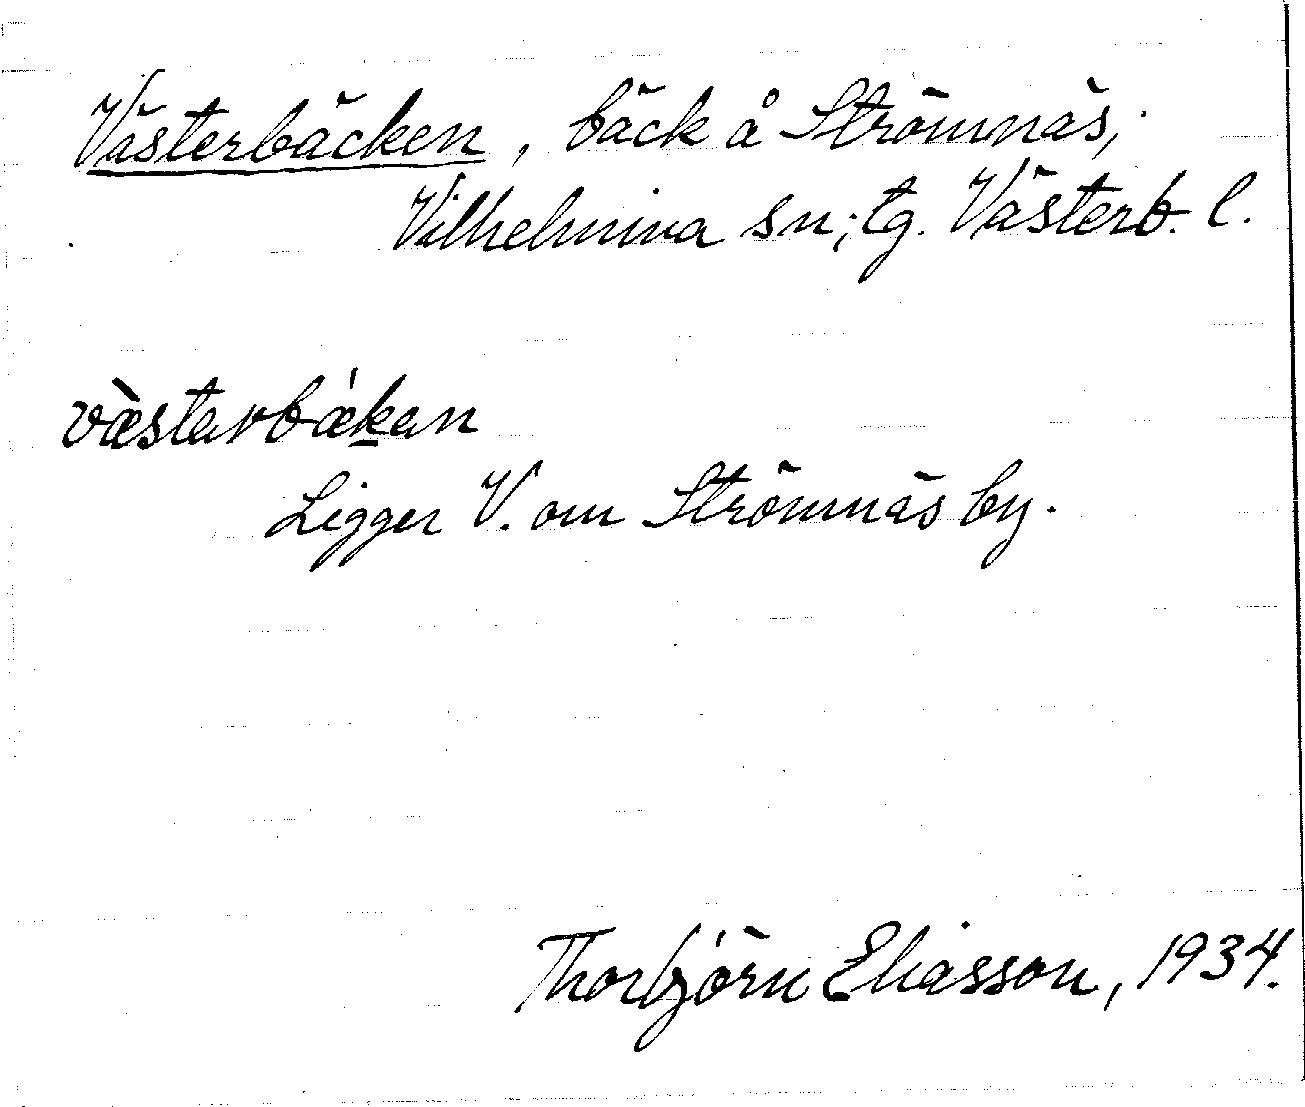 Västerbäcken, bäck å Strömnäs;
Vilhelmina sn; tg. Västerb. l.
væ̀starbǽkan
Ligger V. om Strömnäs by.
Thorbjörn Eliasson, 1934.